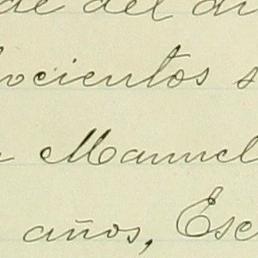 de del di
ocientos s
Manuel
años, Esc